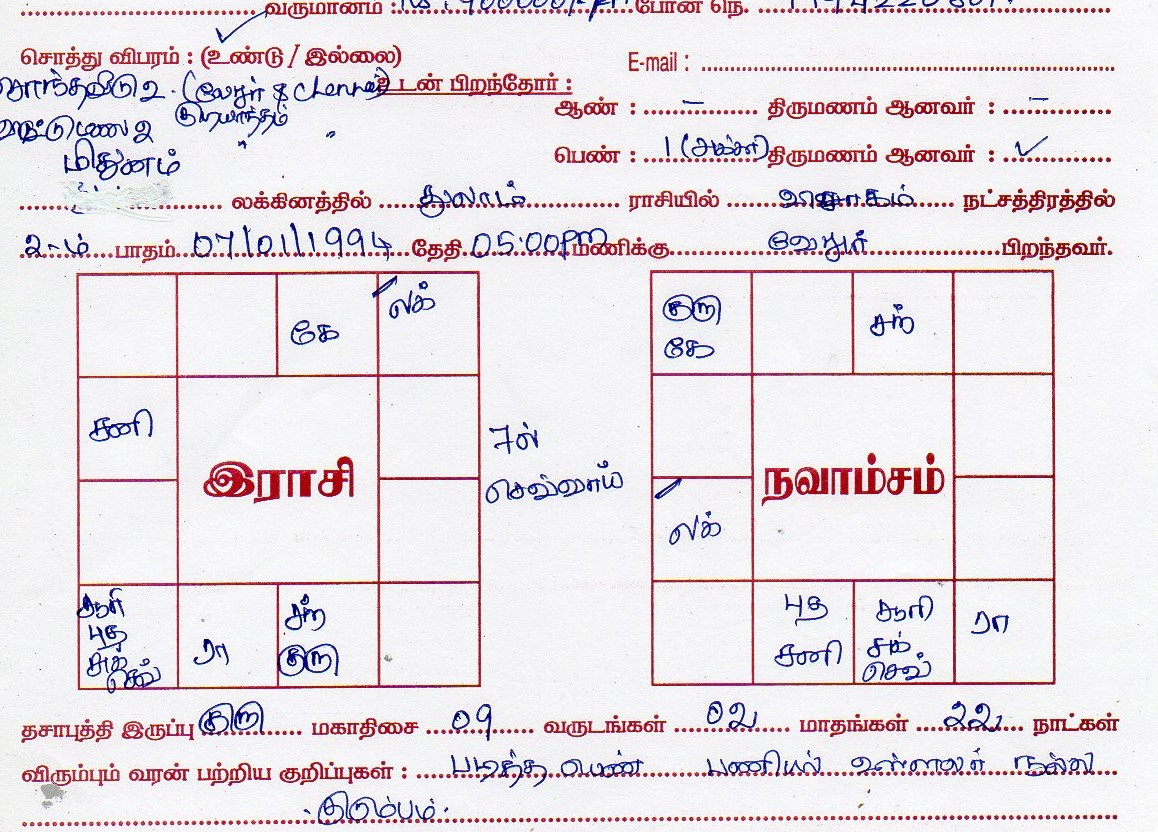 வருமானம் : போன் நெ.
சொத்து விபரம் : (உண்டு / இல்லை) E-mail :
சொந்தவீடு 2. (வேலூர் & Chennai) உடன் பிறந்தோர் :
ஆண் : – திருமணம் ஆனவர் : –
வீட்டுமனை 2
மிதுனம் பெண் : 1 (அக்கா) திருமணம் ஆனவர் : ✓
லக்கினத்தில் துலாம் ராசியில் விசாகம் நட்சத்திரத்தில்
2-ம் பாதம் 07/01/1994 தேதி 05:00pm மணிக்கு வேலூர் பிறந்தவர்.
கே லக்
சனி
இராசி
7ல்
செவ்வாய்
சூரி
புத
சுக்
செவ்
ரா
சந்
குரு
குரு
கே
சந்
நவாம்சம்
லக்
புத
சனி
சூரி
சுக்
செவ்
ரா
தசாபுத்தி இருப்பு குரு மகாதிசை 09 வருடங்கள் 02 மாதங்கள் 22 நாட்கள்
விரும்பும் வரன் பற்றிய குறிப்புகள் : படித்த பெண் பணியில் உள்ளவர் நல்ல
குடும்பம்.